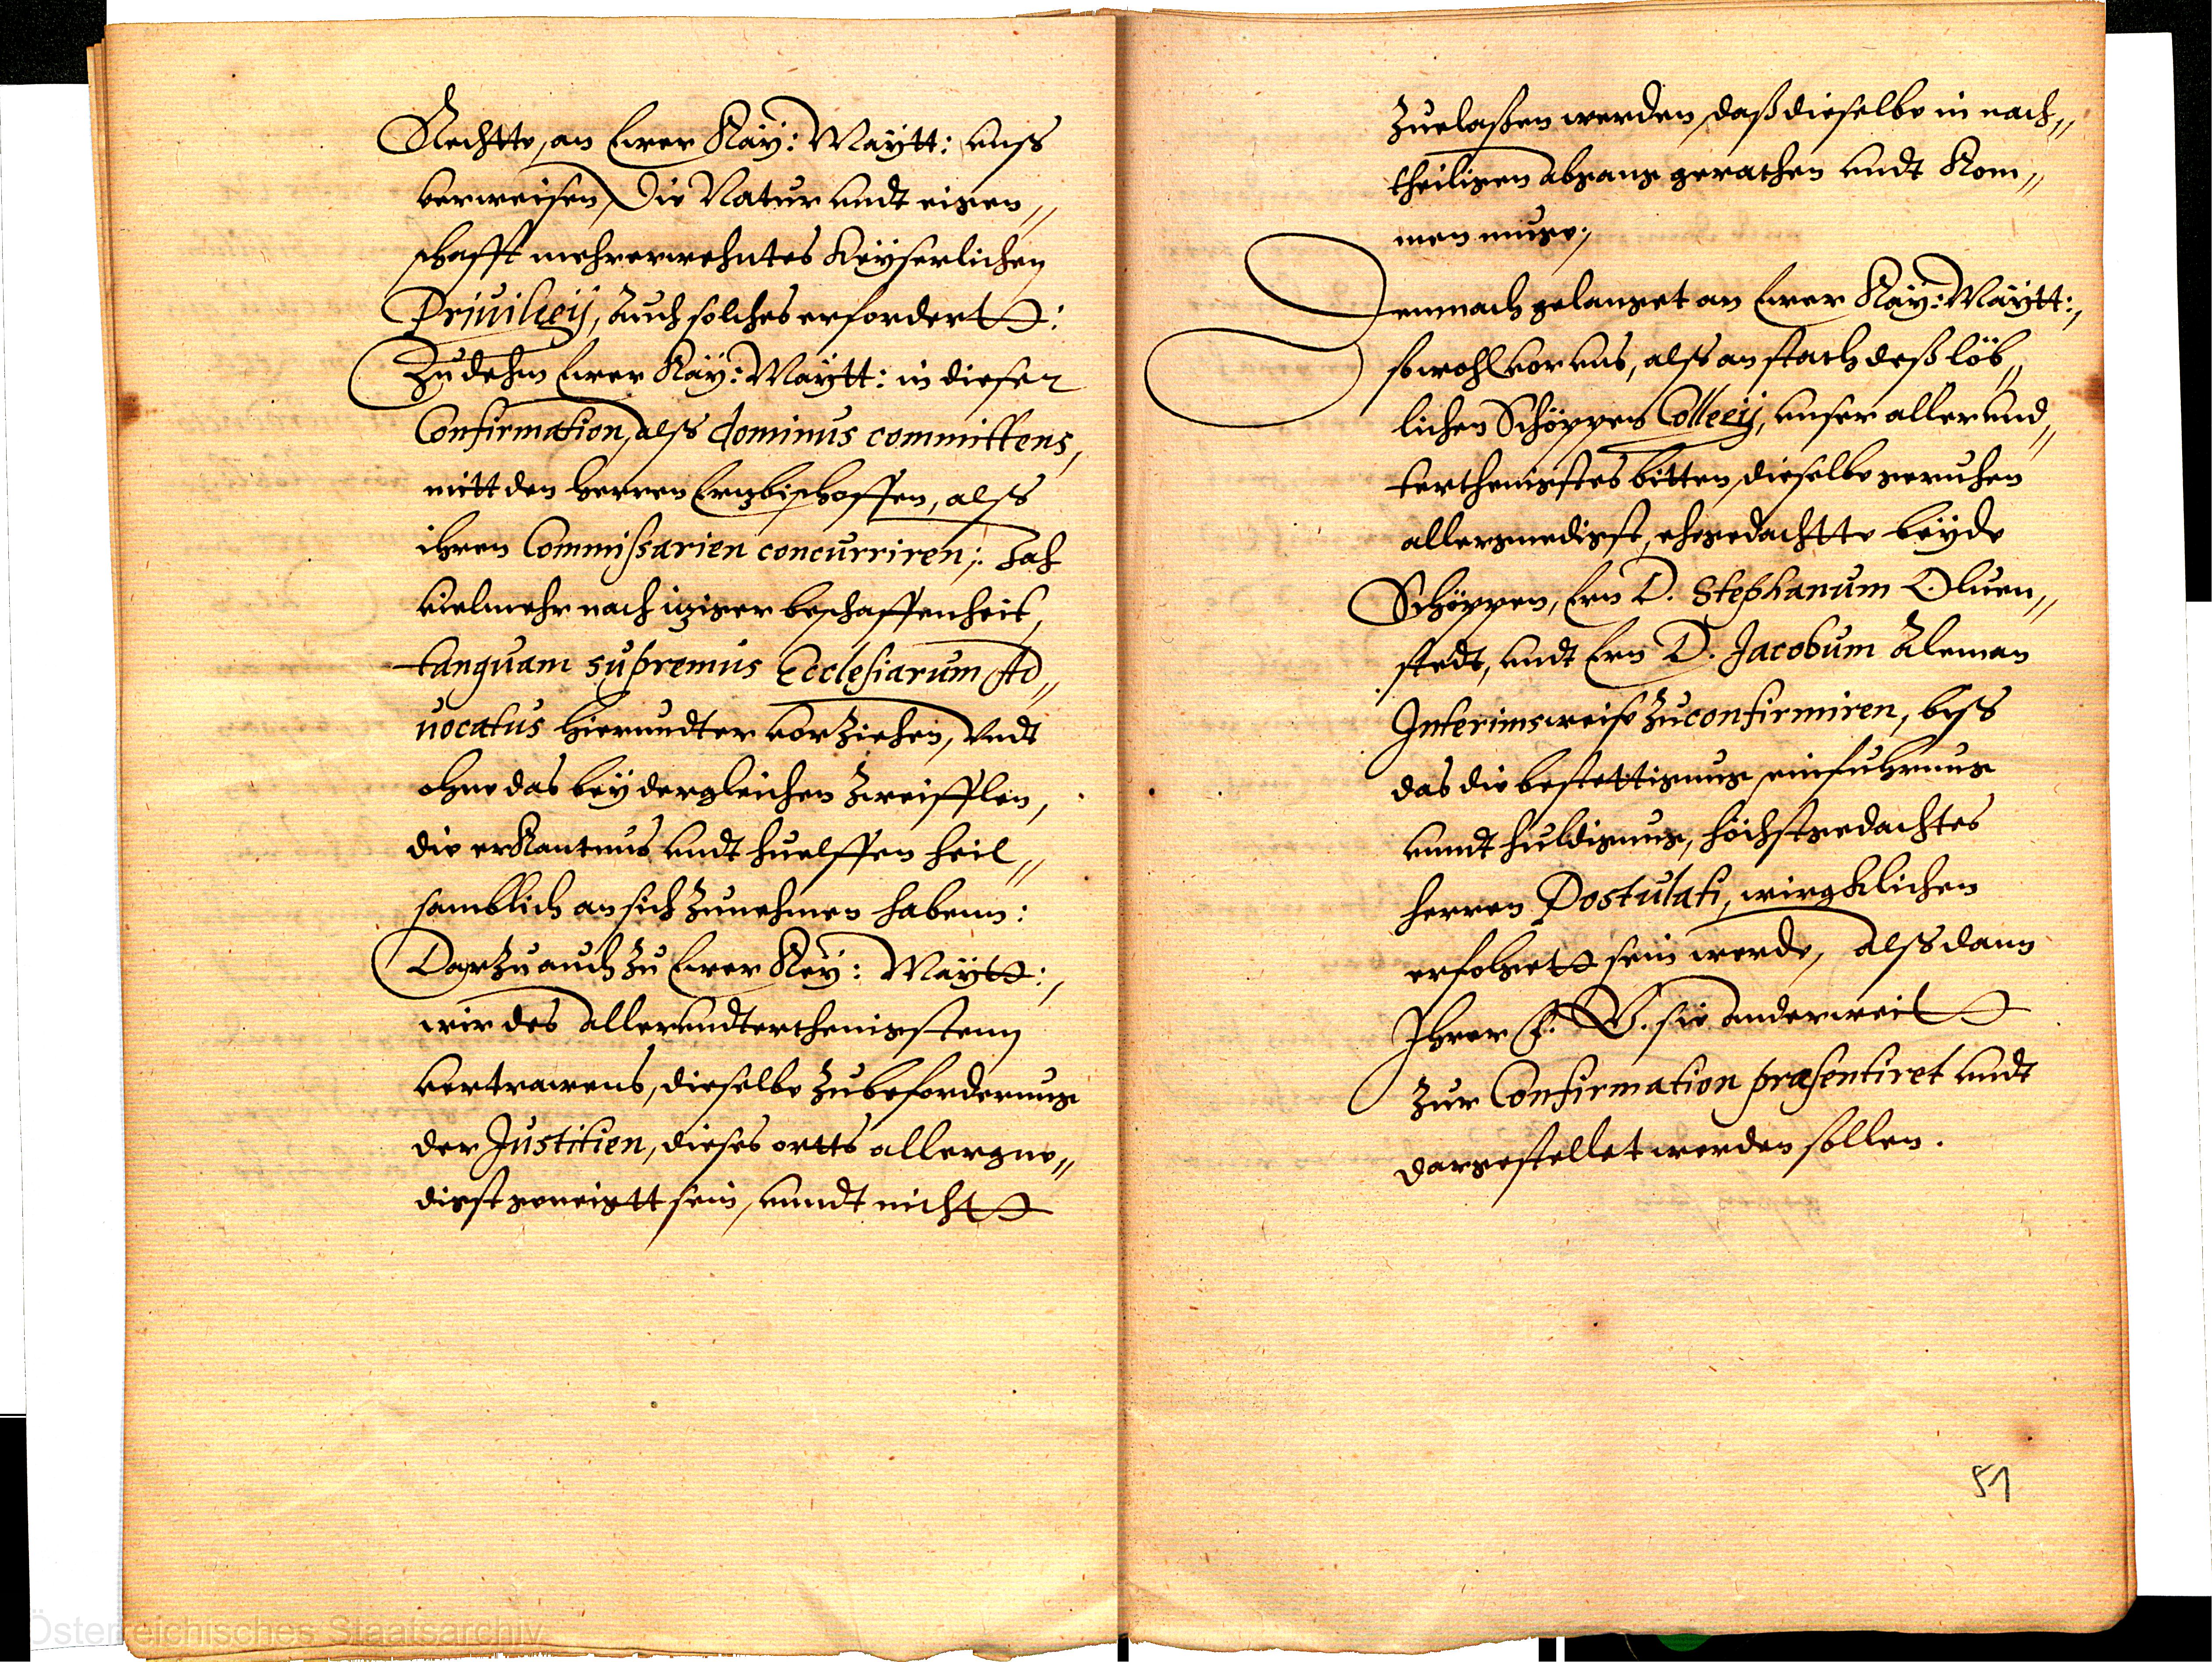 Rechtte, an Ewer Kaÿ: Maÿtt: unß
verweisen, Die Natur undt eigen„
schafft mehrerwehntes Keÿserlichen
Priuilegij, Auch solches erfordertt:
Zu dehm Ewer Kaÿ: Maÿtt: in dieser
Confirmation, alß dominus committens,
mitt den herren Ertzbischoffen, alß
ihren Commißarien concurriren; Jah
vielmehr nach itziger beschaffenheit,
tanquam supremus Ecclesiarum Ad„
uocatus hierundter vorziehen, Undt
ohne das beÿ dergleichen Zweifflen,
die erkantnus undt huelffen heil„
samblich an sich zunehmen habenn:
Darzu auch zu Ewer Keÿ: Maÿtt:,
wir des allerundterthenigstenn
vertrawens, dieselbe zubeforderung
der Justitien, dieses ortts allergne„
digst geneigtt sein, unndt nichtt
zuelaßen werden, daß dieselbe in nach„
theiligen abgang gerathen undt Kom„
men muge;
Demnach gelanget an Ewer Kaÿ: Maÿtt:,
sowohl vor uns, alß an stath deß löb„
lichen Schöppen Collegij, unser allerund„
terthenigstes bitten, dieselbe geruhen
allergnedigst, ehegedachtte beÿde
Schöppen, Ern D. Stephanum Oluen„
stedt, undt Ern D. Jacobum Aleman
Interimsweise zu confirmiren, biß
das die bestettigung, einfuhrung
unndt huldigung, höchstgedachtes
herren Postulati, wirgklichen
erfolgett sein werde, Alßdann
Ihrer F. G. sie anderweitt
zur Confirmation præsentiret undt
dargestellet werden sollen.
51
Österreichisches Staatsarchiv